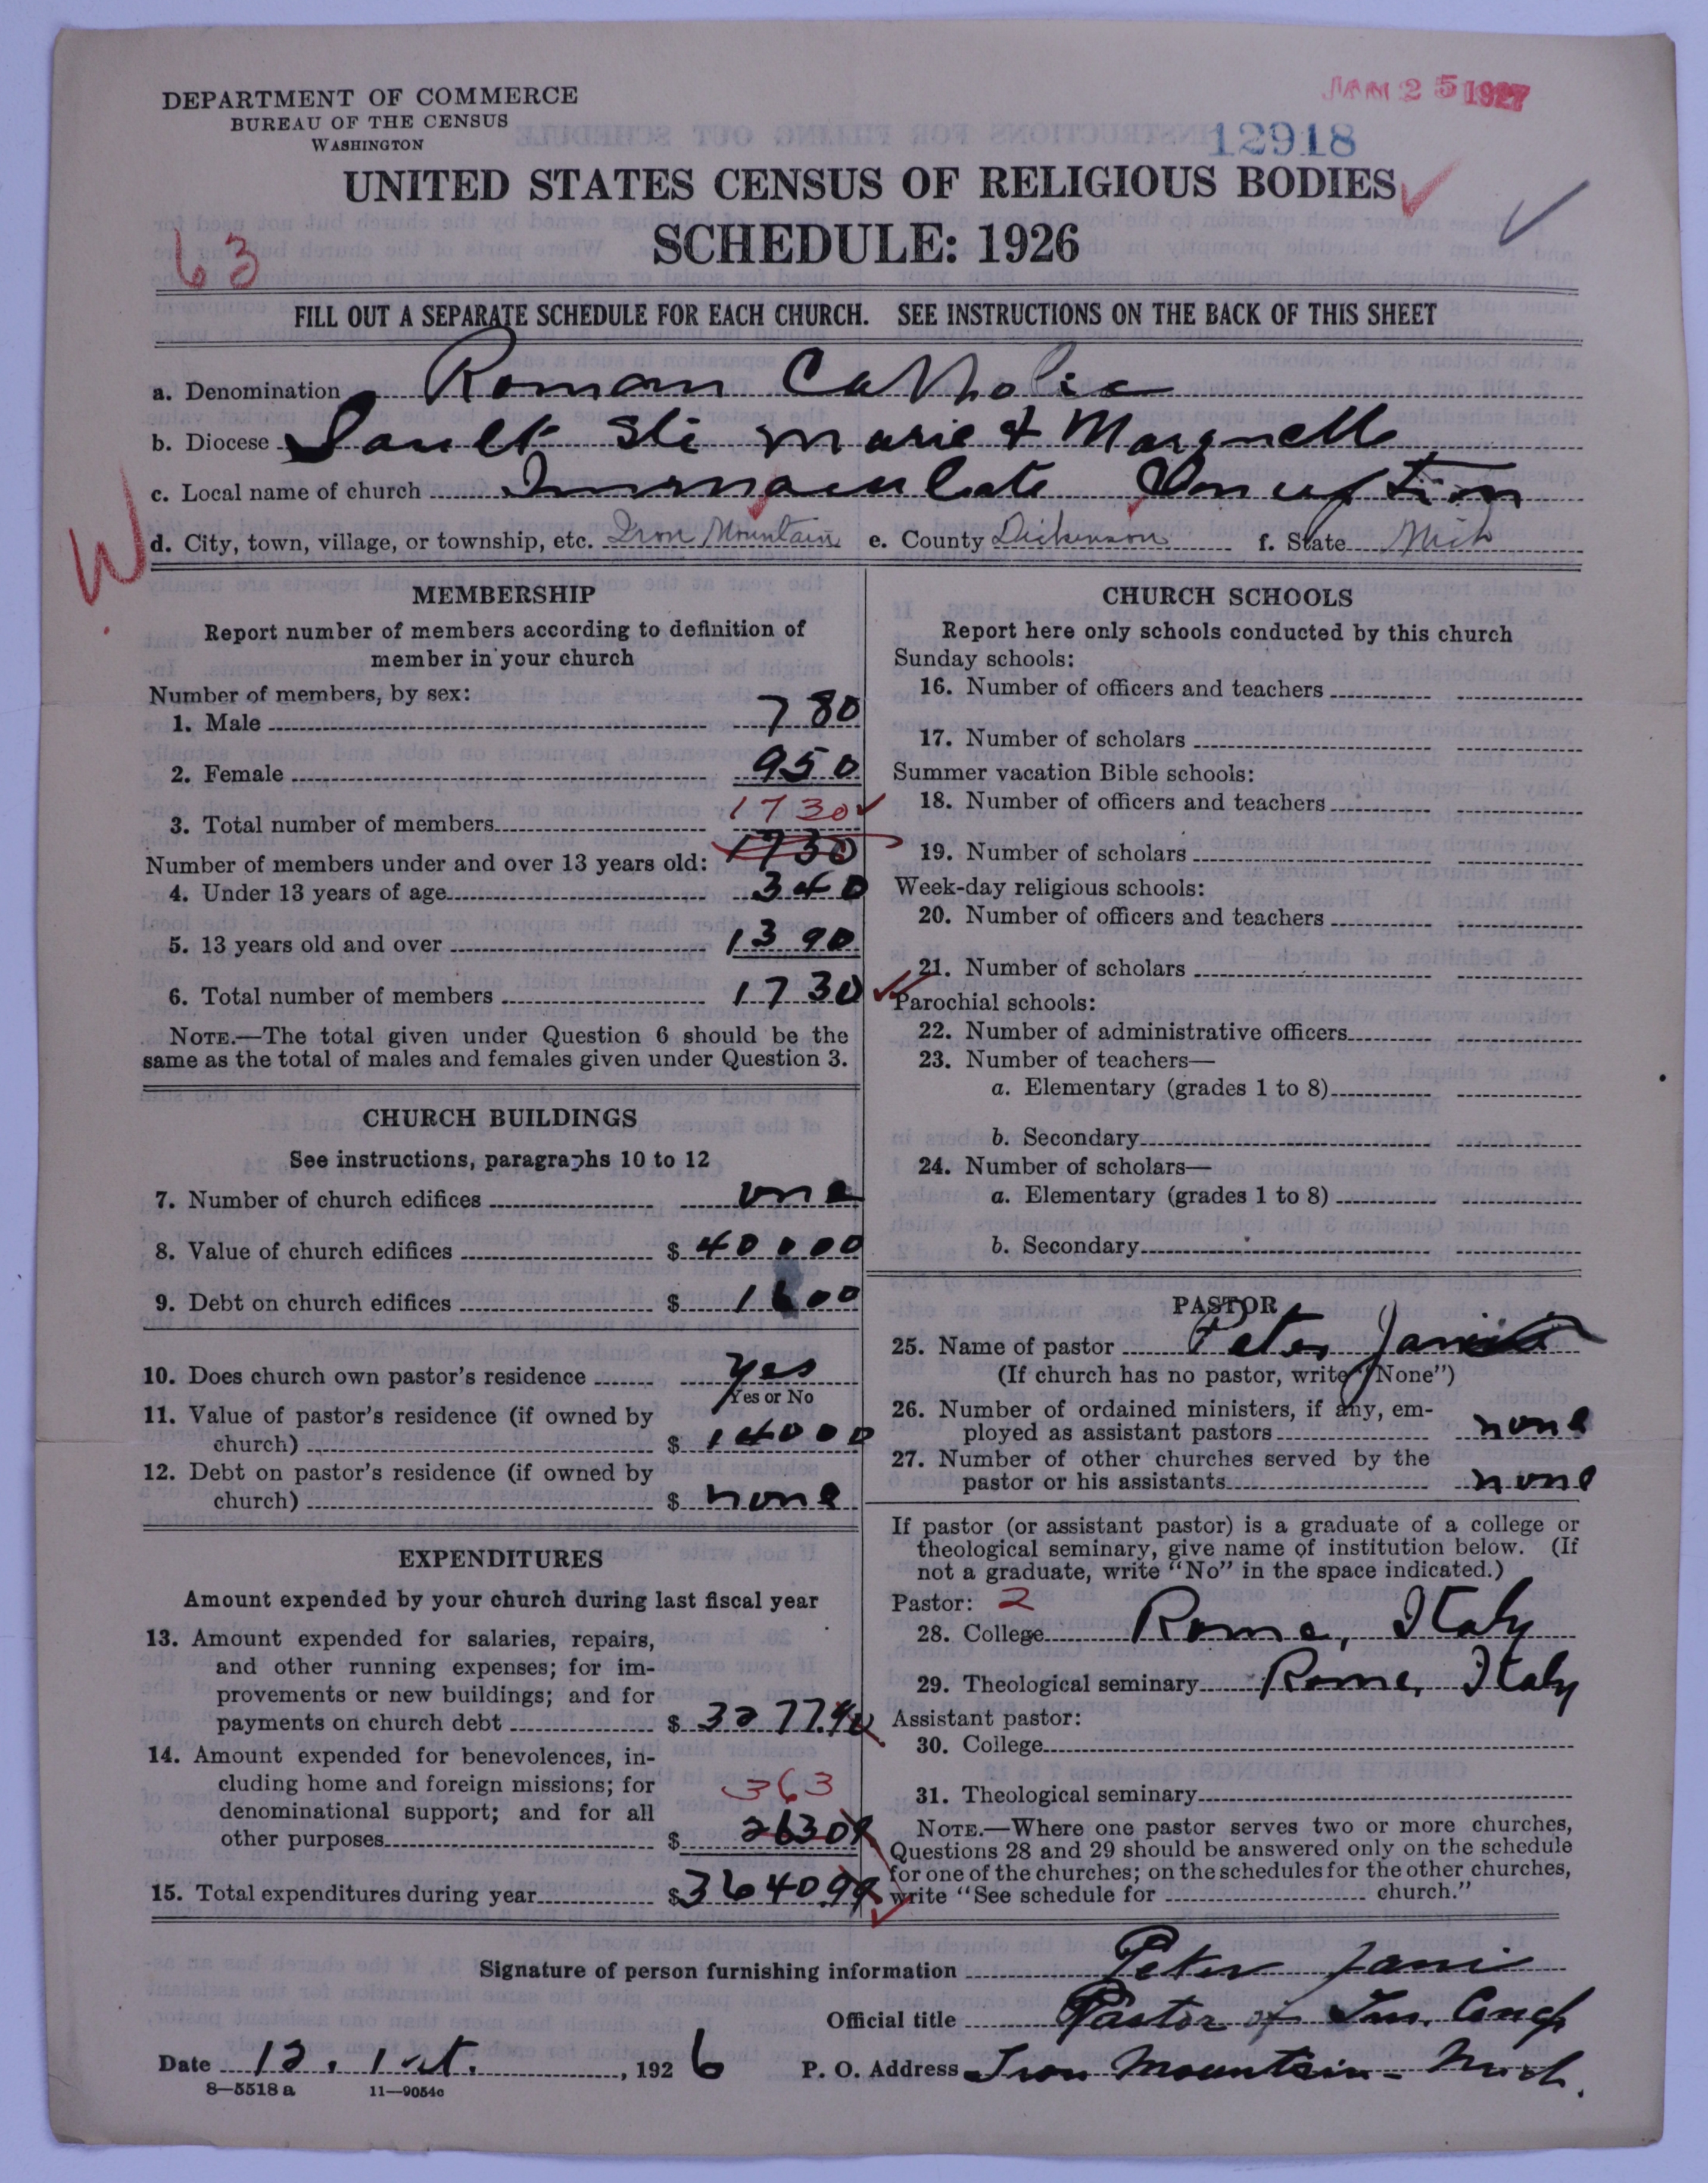 JAN 25 1927
DEPARTMENT OF COMMERCE
BUREAU OF THE CENSUS
WASHINGTON
12918
UNITED STATES CENSUS OF RELIGIOUS BODIES
SCHEDULE: 1926
63
FILL OUT A SEPARATE SCHEDULE FOR EACH CHURCH. SEE INSTRUCTIONS ON THE BACK OF THIS SHEET
a. Denomination Roman Catholic
b. Diocese Sault Ste Marie & Marquette
c. Local name of church Immaculate Conception
W
d. City, town, village, or township, etc. Iron Mountain e. County Dickinson f. State Mich
MEMBERSHIP
Report number of members according to definition of
member in your church
Number of members, by sex:
1. Male 780
2. Female 950
1730
3. Total number of members 1730
Number of members under and over 13 years old:
4. Under 13 years of age 340
5. 13 years old and over 1390
6. Total number of members 1730
NOTE.—The total given under Question 6 should be the
same as the total of males and females given under Question 3.
CHURCH BUILDINGS
See instructions, paragraphs 10 to 12
7. Number of church edifices one
8. Value of church edifices $ 40000
9. Debt on church edifices $ 1600
10. Does church own pastor's residence yes
Yes or No
11. Value of pastor's residence (if owned by
church) $ 14000
12. Debt on pastor's residence (if owned by
church) $ none
EXPENDITURES
Amount expended by your church during last fiscal year
13. Amount expended for salaries, repairs,
and other running expenses; for im-
provements or new buildings; and for
payments on church debt $ 3277.90
14. Amount expended for benevolences, in-
cluding home and foreign missions; for
363
denominational support; and for all
other purposes $ 26309
15. Total expenditures during year $ 364099
CHURCH SCHOOLS
Report here only schools conducted by this church
Sunday schools:
16. Number of officers and teachers
17. Number of scholars
Summer vacation Bible schools:
18. Number of officers and teachers
19. Number of scholars
Week-day religious schools:
20. Number of officers and teachers
21. Number of scholars
Parochial schools:
22. Number of administrative officers
23. Number of teachers—
a. Elementary (grades 1 to 8)
b. Secondary
24. Number of scholars—
a. Elementary (grades 1 to 8)
b. Secondary
PASTOR
25. Name of pastor Peter Janis
(If church has no pastor, write "None")
26. Number of ordained ministers, if any, em-
ployed as assistant pastors none
27. Number of other churches served by the
pastor or his assistants none
If pastor (or assistant pastor) is a graduate of a college or
theological seminary, give name of institution below. (If
not a graduate, write "No" in the space indicated.)
Pastor: 2
28. College Rome, Italy
29. Theological seminary Rome, Italy
Assistant pastor:
30. College
31. Theological seminary
NOTE.—Where one pastor serves two or more churches,
Questions 28 and 29 should be answered only on the schedule
for one of the churches; on the schedules for the other churches,
write "See schedule for church."
Signature of person furnishing information Peter Jani
Official title Pastor of Im. Concp
Date 12. 1st. , 1926 P. O. Address Iron Mountain - Mich.
8—5518a 11—9054c